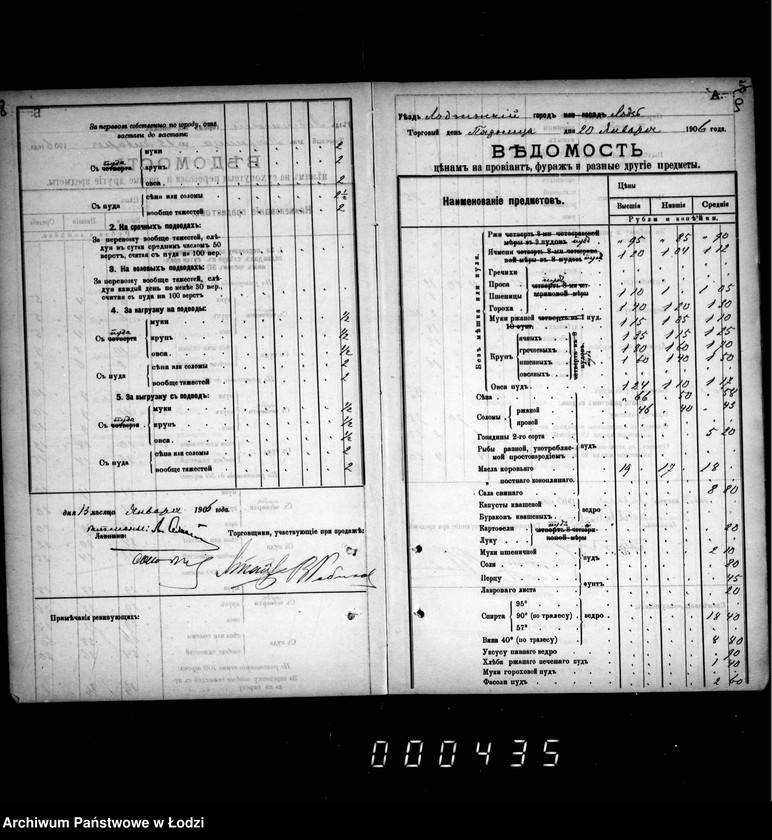 За перевозъ собственно по городу, отъ
заставы до заставы:
пуда
Съ четверти
муки 2
крупъ 2
овса 2
Съ пуда
сѣна или соломы 2½
вообще тяжестей 2
2. На срочныхъ подводахъ:
За перевозку вообще тяжестей, слѣ-
дуя въ сутки среднимъ числомъ 50
верстъ, считая съ пуда на 100 вер.
3. На воловыхъ подводахъ:
За перевозку вообще тяжестей, слѣ-
дуя каждый день не менѣе 30 вер.,
считая съ пуда на 100 верстъ
4. За нагрузку на подводы:
пуда
Съ четверти
муки ½
крупъ ½
овса ½
Съ пуда
сѣна или соломы 2
вообще тяжестей 2
5. За выгрузку съ подводъ:
пуда
Съ четверти
муки ½
крупъ ½
овса ½
Съ пуда
сѣна или соломы 2
вообще тяжестей 2
дня 13 мѣсяца Января 1906 года.
Торговщики, участвующіе при продажѣ:
Примѣчанія ревизующихъ:
А.
Уѣздъ Лодзинскій городъ или посадъ Лодзь
Торговый день Пятница дня 20 Января 1906 года.
ВѢДОМОСТЬ
цѣнамъ на провіантъ, фуражъ и разные другіе предметы.
Наименованіе предметовъ.
Цѣны
Высшія Низшія Среднія
Рубли и копѣйки.
Безъ мѣшка или куля.
Ржи четверть 8-ми четвериковой
мѣры въ 9 пудовъ пудъ " 95 " 85 " 90
Ячменя четверть 8-ми четверико-
вой мѣры въ 8 пудовъ пудъ 1 20 1 04 1 12
Гречихи
Проса
Пшеницы 1 10 1 1 05
Гороха 1 40 1 20 1 30
пудъ
четверть 8-ми чет-
вериковой мѣры
Муки ржаной четверть въ 7 пуд.
10 фунт. 1 15 1 05 1 10
Крупъ
ячныхъ 1 35 1 15 1 25
гречневыхъ 1 80 1 60 1 70
пшенныхъ 1 60 1 40 1 50
овсяныхъ
Овса пудъ 1 24 1 10 1 17
Сѣна 66 50 58
Соломы
ржаной 46 40 43
яровой
Говядины 2-го сорта 5 20
пудъ
Рыбы разной, употребляе-
мой простонародіемъ
Масла коровьяго 19 17 18
" постнаго конопляннаго
Сала свинаго 8 80
Капусты квашеной
Бураковъ квашеныхъ
ведро
Картофеля 20
Луку
пудъ
четверть 8-четвери-
ковой мѣры
Муки пшеничной 2 10
Соли 80
пудъ
Перцу 45
Лавроваго листа 20
фунтъ
Спирта
95°
90° (по тралесу) ведро 18 40
57°
Вина 40° (по тралесу) 8 80
Уксусу пивнаго ведро 90
Хлѣба ржанаго печенаго пудъ 1 40
Муки гороховой пудъ
Фасоли пудъ 2 60
000435
Archiwum Państwowe w Łodzi